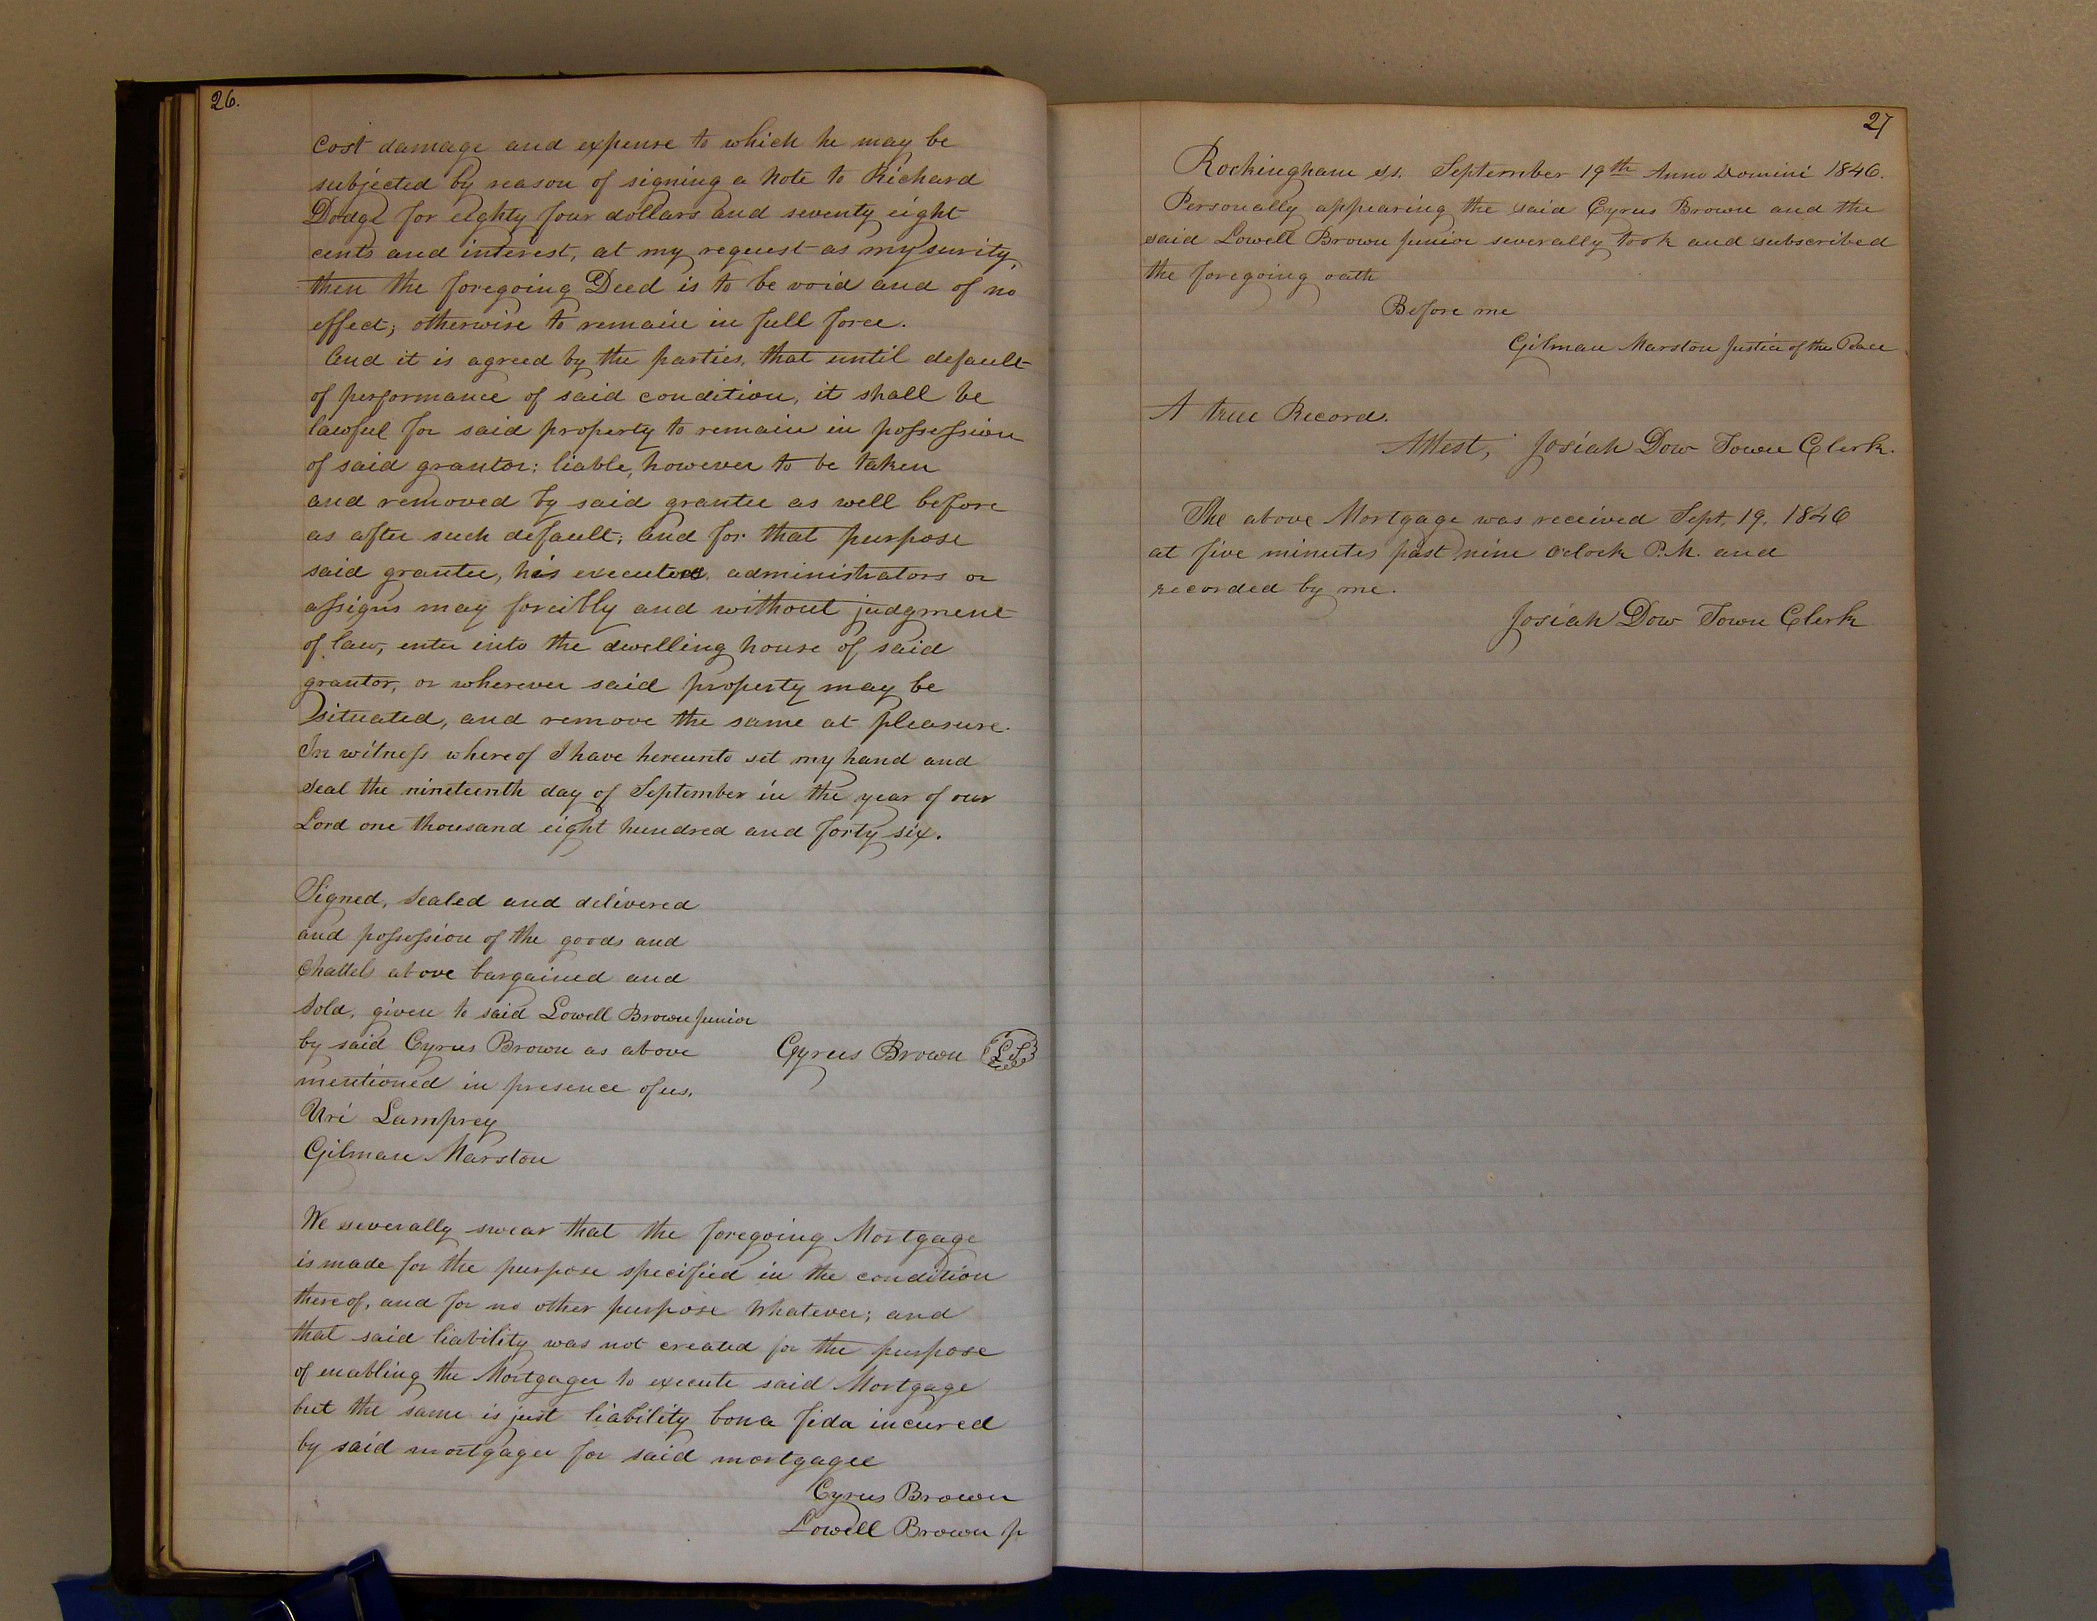 26.
cost damage and expense to which he may be
subjected by reason of signing a Note to Richard
Dodge for eighty four dollars and seventy eight
cents and interest, at my request as my surity,
then the foregoing Deed is to be void and of no
effect; otherwise to remain in full force.
And it is agreed by the parties, that until default
of performance of said condition, it shall be
lawful for said property to remain in possession
of said grantor; liable, however to be taken
and removed by said grantee as well before
as after such default; and for that purpose
said grantee, his executors, administrators or
assigns may forcibly and without judgment
of law, enter into the dwelling house of said
grantor, or wherever said property may be
situated, and remove the same at pleasure.
In witness whereof I have hereunto set my hand and
seal the nineteenth day of September in the year of our
Lord one thousand eight hundred and forty six.
Signed, sealed and delivered
and possession of the goods and
Chattels above bargained and
sold, given to said Lowell Brown junior
by said Cyrus Brown as above
mentioned in presence of us.
Cyrus Brown L.S.
Uri Lamprey
Gilman Marston
We severally swear that the foregoing Mortgage
is made for the purpose specified in the condition
thereof, and for no other purpose whatever; and
that said liability was not created for the purpose
of enabling the Mortgager to execute said Mortgage
but the same is just liability bona fida incured
by said mortgager for said mortgagee
Cyrus Brown
Lowell Brown jr
27
Rockingham ss. September 19th Anno Domini 1846.
Personally appearing the said Cyrus Brown and the
said Lowell Brown junior severally took and subscribed
the foregoing oath
Before me
Gilman Marston Justice of the Peace
A true Record.
Attest, Josiah Dow Town Clerk.
The above Mortgage was received Sept. 19. 1846
at five minutes past nine oclock P.M. and
recorded by me.
Josiah Dow Town Clerk